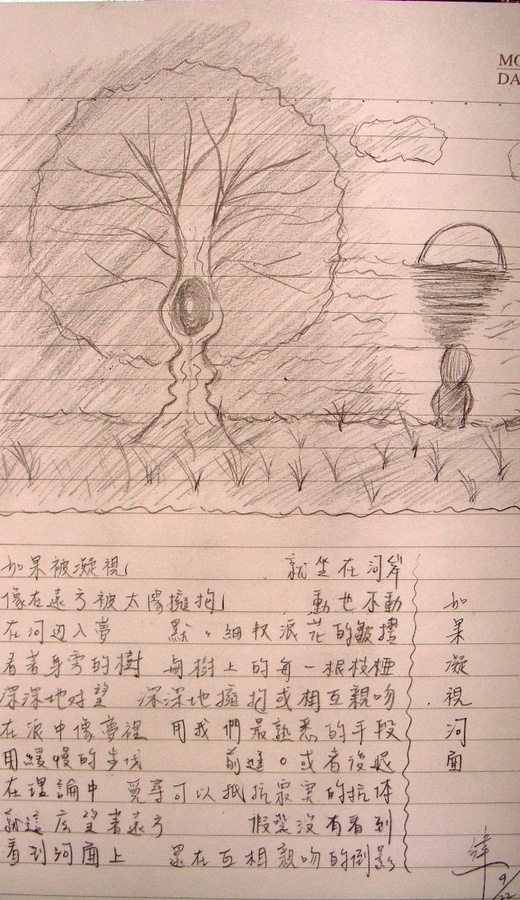 MO
DA
如果凝視河面
如果被凝視 就坐在河岸
像在遠方被太陽擁抱 動也不動
在河邊入夢 默 細紋浪花的皺摺
看著身旁的樹 與樹上的每一根枝椏
深深地對望 深深地擁抱或相互親吻
在浪中像夢裡 用我們最熟悉的手段
用緩慢的步伐 前進。或者後退
在理論中 覓尋可以抵抗寂寞的抗体
就這庅望著遠方 假裝沒有看到
看到河面上 還在互相親吻的倒影
9/22